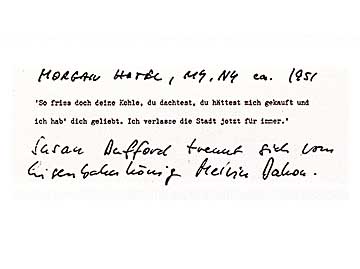 MORGAN HOTEL, NY, NY ca. 1951
'So friss doch deine Kohle, du dachtest, du hättest mich gekauft und
ich hab' dich geliebt. Ich verlasse die Stadt jetzt für immer.'
Susan Dufford trennt sich vom
Eisenbahnkönig Melvin Dahon.